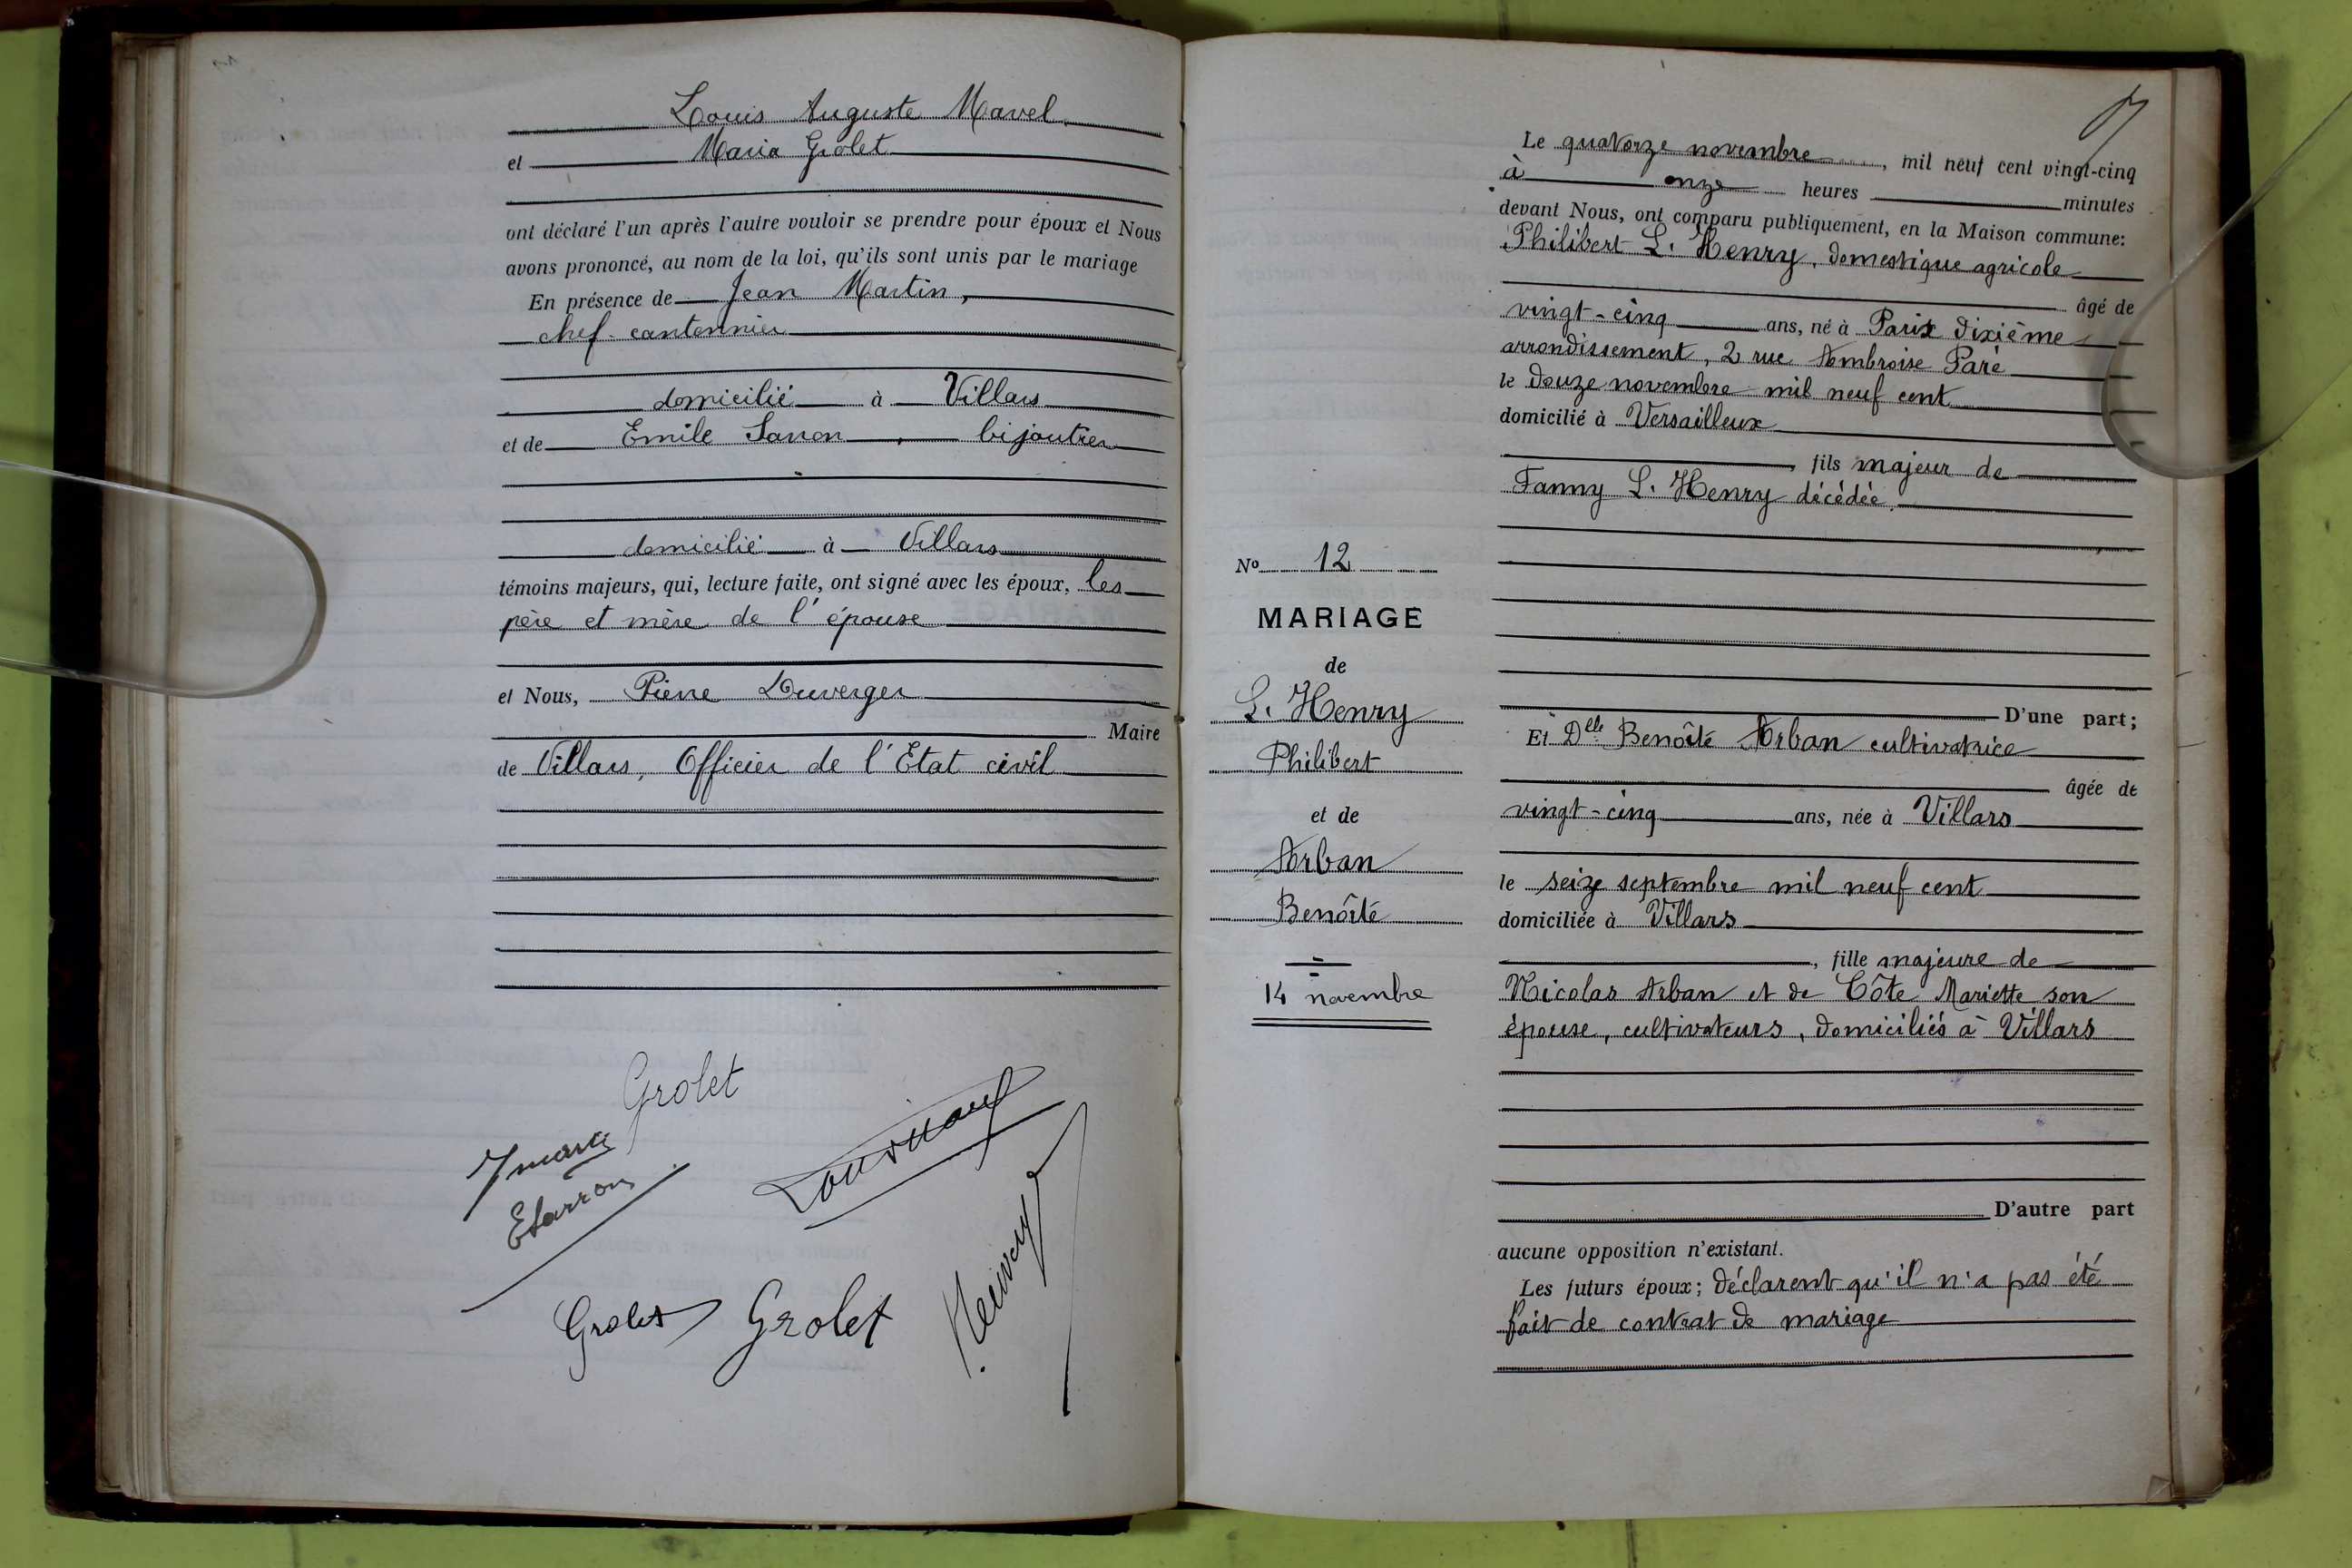 Louis Auguste Mavel
et Maria Grolet
ont déclaré l'un après l'autre vouloir se prendre pour époux et Nous
avons prononcé, au nom de la loi, qu'ils sont unis par le mariage
En présence de Jean Martin,
chef-cantonnier
domicilié à Villars
et de Emile Sanon, bijoutier
domicilié à Villars
témoins majeurs, qui, lecture faite, ont signé avec les époux, les
père et mère de l'épouse
et Nous, Pierre Duverger
Maire
de Villars, Officier de l'Etat civil
Grolet
Grolet
Grolet
Le quatorze novembre, mil neuf cent vingt-cinq
à onze heures minutes
devant Nous, ont comparu publiquement, en la Maison commune:
Philibert L. Henry, domestique agricole
âgé de
vingt-cinq ans, né à Paris dixième
arrondissement, 2 rue Ambroise Paré
le douze novembre mil neuf cent
domicilié à Versailleux
fils majeur de
Fanny L. Henry décédée.
No 12
MARIAGE
de
L. Henry
Philibert
et de
Arban
Benôîte
14 novembre
D'une part;
Et Dlle Benôîte Arban cultivatrice
âgée de
vingt-cinq ans, née à Villars
le seize septembre mil neuf cent
domiciliée à Villars
, fille majeure de
Nicolas Arban et de Côte Mariette son
épouse, cultivateurs, domiciliés à Villars
D'autre part
aucune opposition n'existant.
Les futurs époux; déclarent qu'il n'a pas été
fait de contrat de mariage